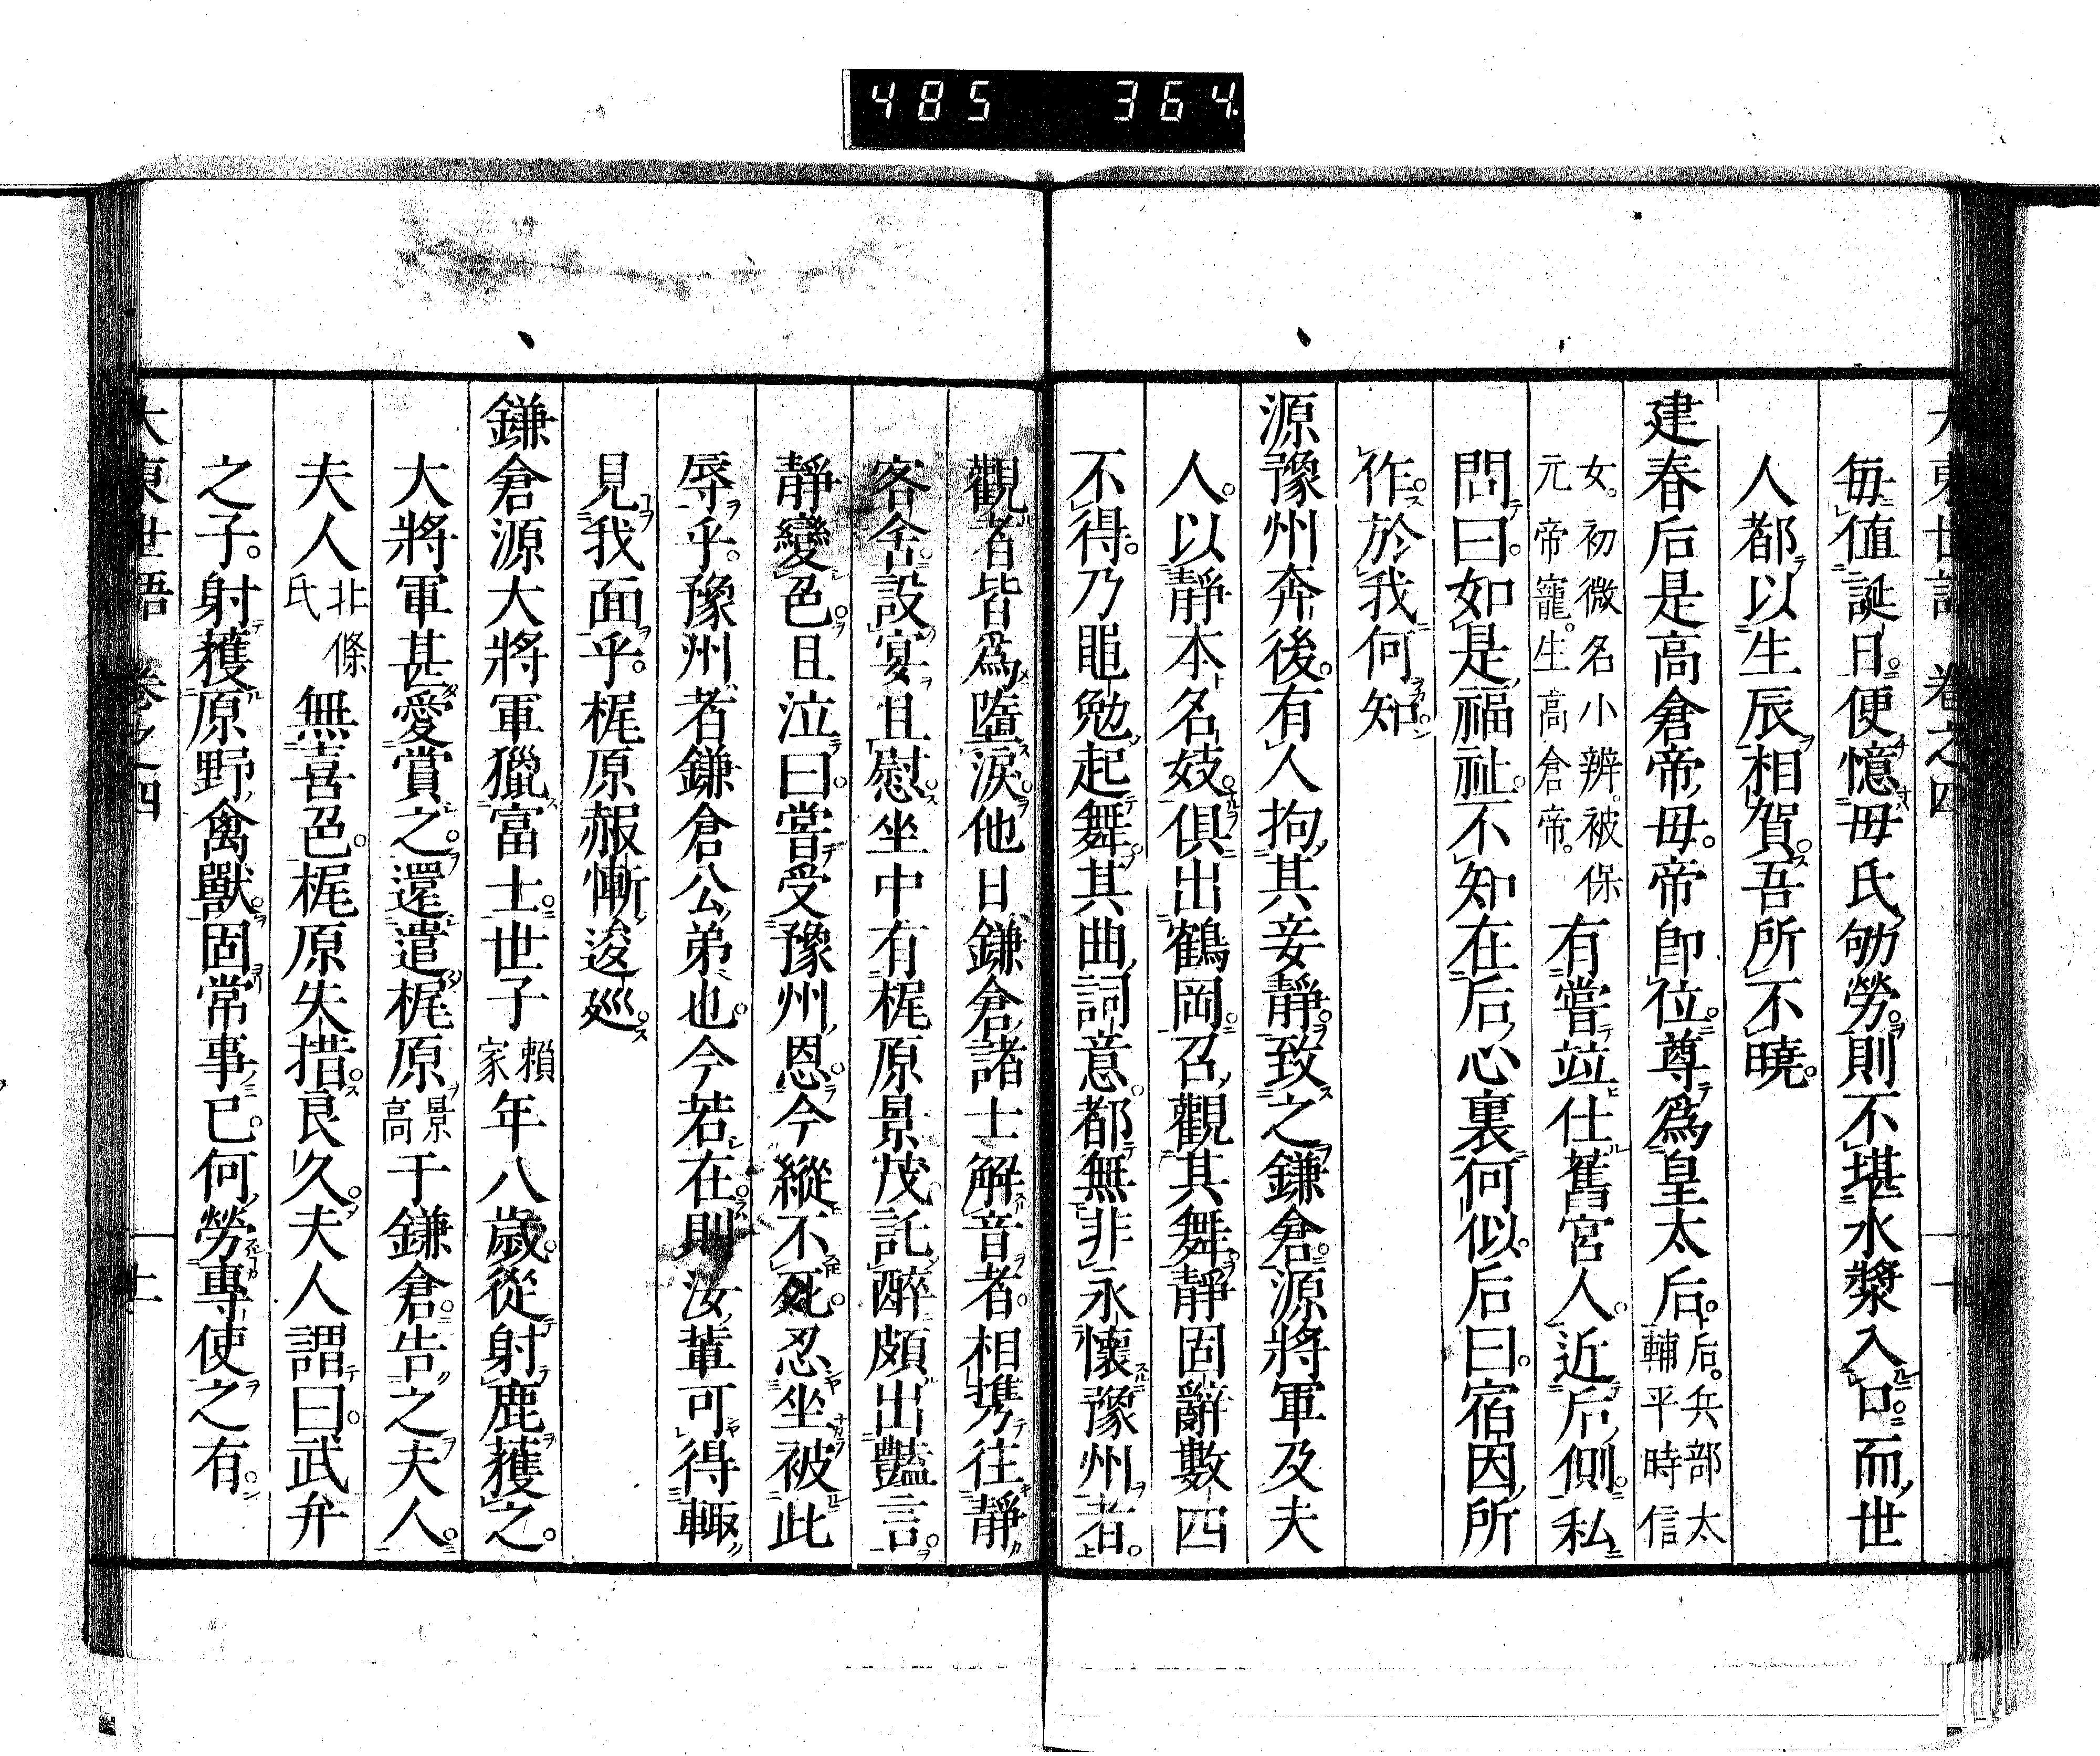 485 364.
大東世語 卷之四
每值誕日便憶毋氏劬勞則不堪水漿入口而世
人都以生辰相賀吾所不曉
建春后是高倉帝毋帝卽位尊爲皇太后后兵部太輔平時信
女初微名小辨被保元帝寵生高倉帝有嘗竝仕舊宮人近后側私
問曰如是福祉不知在后心裏何似后曰宿因所
作於我何知
源豫州奔後有人拘其妾靜致之鎌倉源將軍及夫
人以靜本名妓俱出鶴岡召觀其舞靜固辭數四
不得乃黽勉起舞其曲詞意都無非永懷豫州者
觀者皆爲墮淚他日鎌倉諸士解音者相携往靜
客舍設宴且慰坐中有梶原景茂託醉頗出豔言
靜變色且泣曰嘗受豫州恩今縱不死忍坐被此
辱乎豫州者鎌倉公弟也今若在則汝輩可得輙
見我面乎梶原赧慚逡巡
鎌倉源大將軍獵富士世子賴家年八歲從射鹿獲之
大將軍甚愛賞之還遣梶原景高于鎌倉告之夫人
夫人北條氏無喜色梶原失措良久夫人謂曰武弁
之子射獲原野禽獸固常事已何勞專使之有
大東世語 卷之四 十一